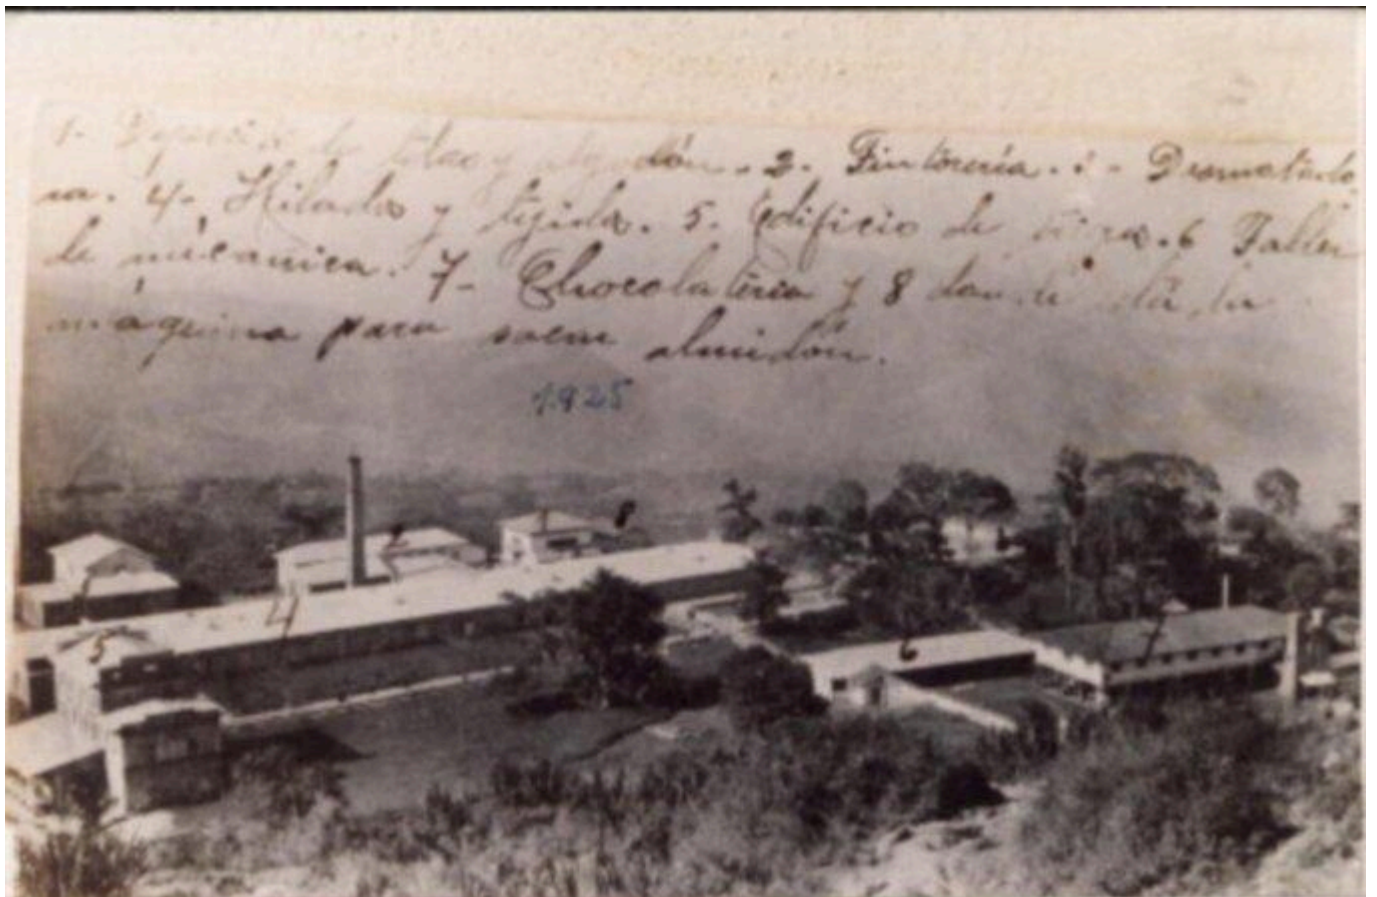 1- de telas y algodón. 2. Tintorería. 3- Desmotado
ra. 4- Hilados y tejidos. 5. Edificio de 6 Taller
de mecanica. 7- Chocolateria y 8 donde está la
máquina para sacar almidón.
1.925
8
4
5
6
7